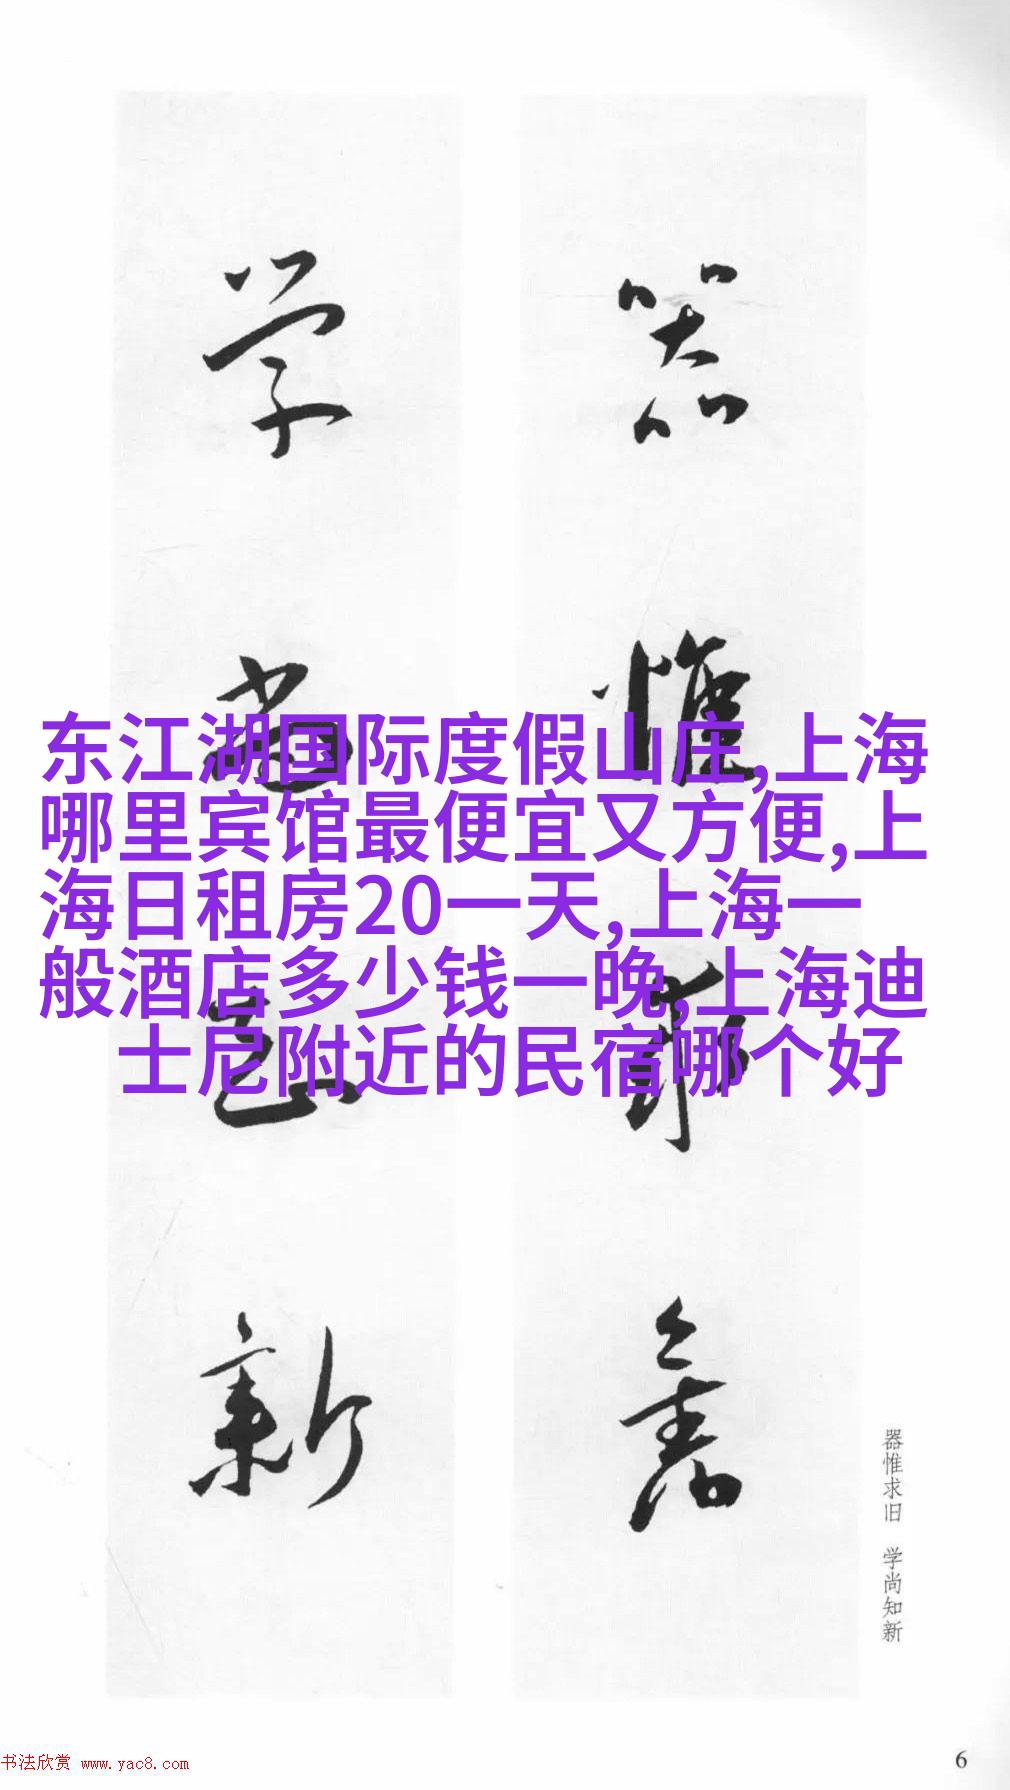 器惟求舊
学尚知新
东江湖国际度假山庄,上海
哪里宾馆最便宜又方便,上
海日租房20一天,上海一
般酒店多少钱一晚,上海迪
士尼附近的民宿哪个好
器惟求旧 学尚知新
书法欣赏 www.yac8.com
6